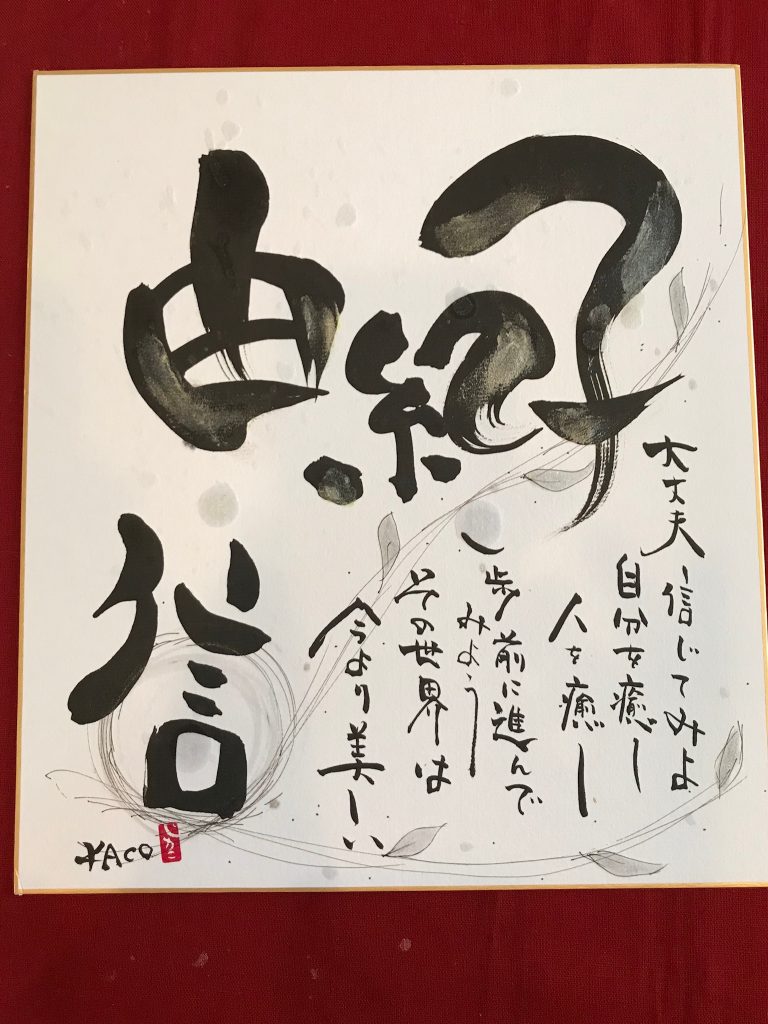 由紀子
信
大丈夫
信じてみよ
自分を癒し
人を癒し
一歩前に進んで
みよう
その世界は
今より美しい
YACO